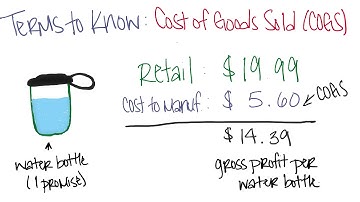 Terms to Know: Cost of Goods Sold (COGS)
Retail: $19 99
Cost to Manuf: $ 5.60 COGS
$14.39
water bottle
(I promise)
gross profit per
water bottle